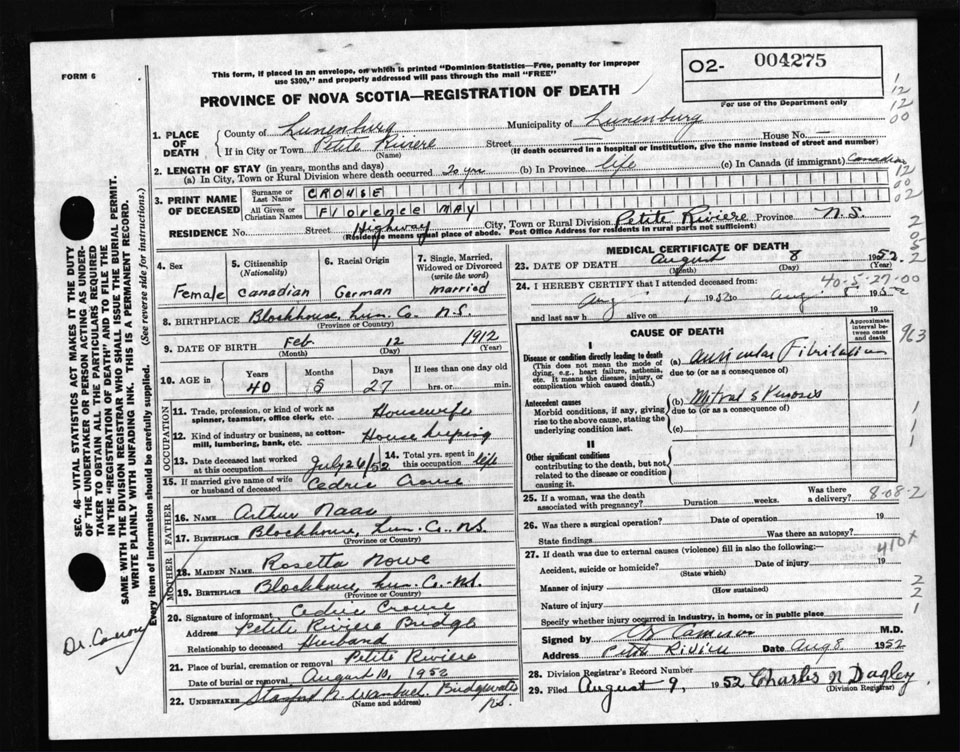 FORM 6
This form, if placed in an envelope, on which is printed "Dominion Statistics—Free, penalty for improper
use $300," and properly addressed will pass through the mail "FREE"
O2- 004275
For use of the Department only
PROVINCE OF NOVA SCOTIA—REGISTRATION OF DEATH
1. PLACE OF DEATH
County of Lunenburg Municipality of Lunenburg
If in City or Town Petite Riviere Street House No. —
(Name) (If death occurred in a hospital or institution, give the name instead of street and number)
2. LENGTH OF STAY (in years, months and days)
(a) In City, Town or Rural Division where death occurred 20 yrs (b) In Province life (c) In Canada (if immigrant) Canadian
3. PRINT NAME OF DECEASED
Surname or Last Name CROUSE
All Given or Christian Names Florence MAY
RESIDENCE No. Street Highway City, Town or Rural Division Petite Riviere Province N.S.
(Residence means usual place of abode. Post Office Address for residents in rural parts not sufficient)
4. Sex Female
5. Citizenship (Nationality) Canadian
6. Racial Origin German
7. Single, Married, Widowed or Divorced (write the word) married
8. BIRTHPLACE Blockhouse, Lun. Co. N.S.
(Province or Country)
9. DATE OF BIRTH Feb 12 1912
(Month) (Day) (Year)
10. AGE in Years 40 Months 5 Days 27 If less than one day old hrs. or min.
OCCUPATION
11. Trade, profession, or kind of work as spinner, teamster, office clerk, etc. Housewife
12. Kind of industry or business, as cotton-mill, lumbering, bank, etc. House keeping
13. Date deceased last worked at this occupation July 26/52 14. Total yrs. spent in this occupation life
15. If married give name of wife or husband of deceased Cedric Crouse
FATHER
16. NAME Arthur Naas
17. BIRTHPLACE Blockhouse, Lun. Co. N.S.
(Province or Country)
MOTHER
18. MAIDEN NAME Rosetta Nowe
19. BIRTHPLACE Blockhouse, Lun. Co. N.S.
(Province or Country)
20. Signature of informant Cedric Crouse
Address Petite Riviere Bridge
Relationship to deceased Husband
21. Place of burial, cremation or removal Petite Riviere
Date of burial or removal August 10, 1952
22. UNDERTAKER Bridgewater N.S.
(Name and address)
MEDICAL CERTIFICATE OF DEATH
23. DATE OF DEATH August 8 1952
(Month) (Day) (Year)
40-5-27-00
24. I HEREBY CERTIFY that I attended deceased from:
Aug 1 1952 to Aug 1952
and last saw h alive on 19
CAUSE OF DEATH
Approximate interval between onset and death
I
Disease or condition directly leading to death
(This does not mean the mode of dying, e.g., heart failure, asthenia, etc. It means the disease, injury, or complication which caused death.)
(a) Auricular Fibrilation
due to (or as a consequence of)
Antecedent causes
Morbid conditions, if any, giving rise to the above cause, stating the underlying condition last.
(b) Mitral Stenosis
due to (or as a consequence of)
(c)
II
Other significant conditions
contributing to the death, but not related to the disease or condition causing it.
25. If a woman, was the death associated with pregnancy? Duration weeks. Was there a delivery? 8-08-2
26. Was there a surgical operation? Date of operation 19
State findings Was there an autopsy?
27. If death was due to external causes (violence) fill in also the following:— 410x
Accident, suicide or homicide? Date of injury 19
(State which)
Manner of injury
(How sustained)
Nature of injury
Specify whether injury occurred in industry, in home, or in public place
Signed by Cameron M.D.
Address Petite Riviere Date Aug 8 1952
28. Division Registrar's Record Number
29. Filed August 9, 1952 Charles N Dagley
(Division Registrar)
SEC. 46—VITAL STATISTICS ACT MAKES IT THE DUTY
OF THE UNDERTAKER OR PERSON ACTING AS UNDER-
TAKER TO OBTAIN ALL THE PARTICULARS REQUIRED
IN THE "REGISTRATION OF DEATH" AND TO FILE THE
SAME WITH THE DIVISION REGISTRAR WHO SHALL ISSUE THE BURIAL PERMIT.
WRITE PLAINLY WITH UNFADING INK. THIS IS A PERMANENT RECORD.
Every item of information should be carefully supplied. (See reverse side for instructions.)